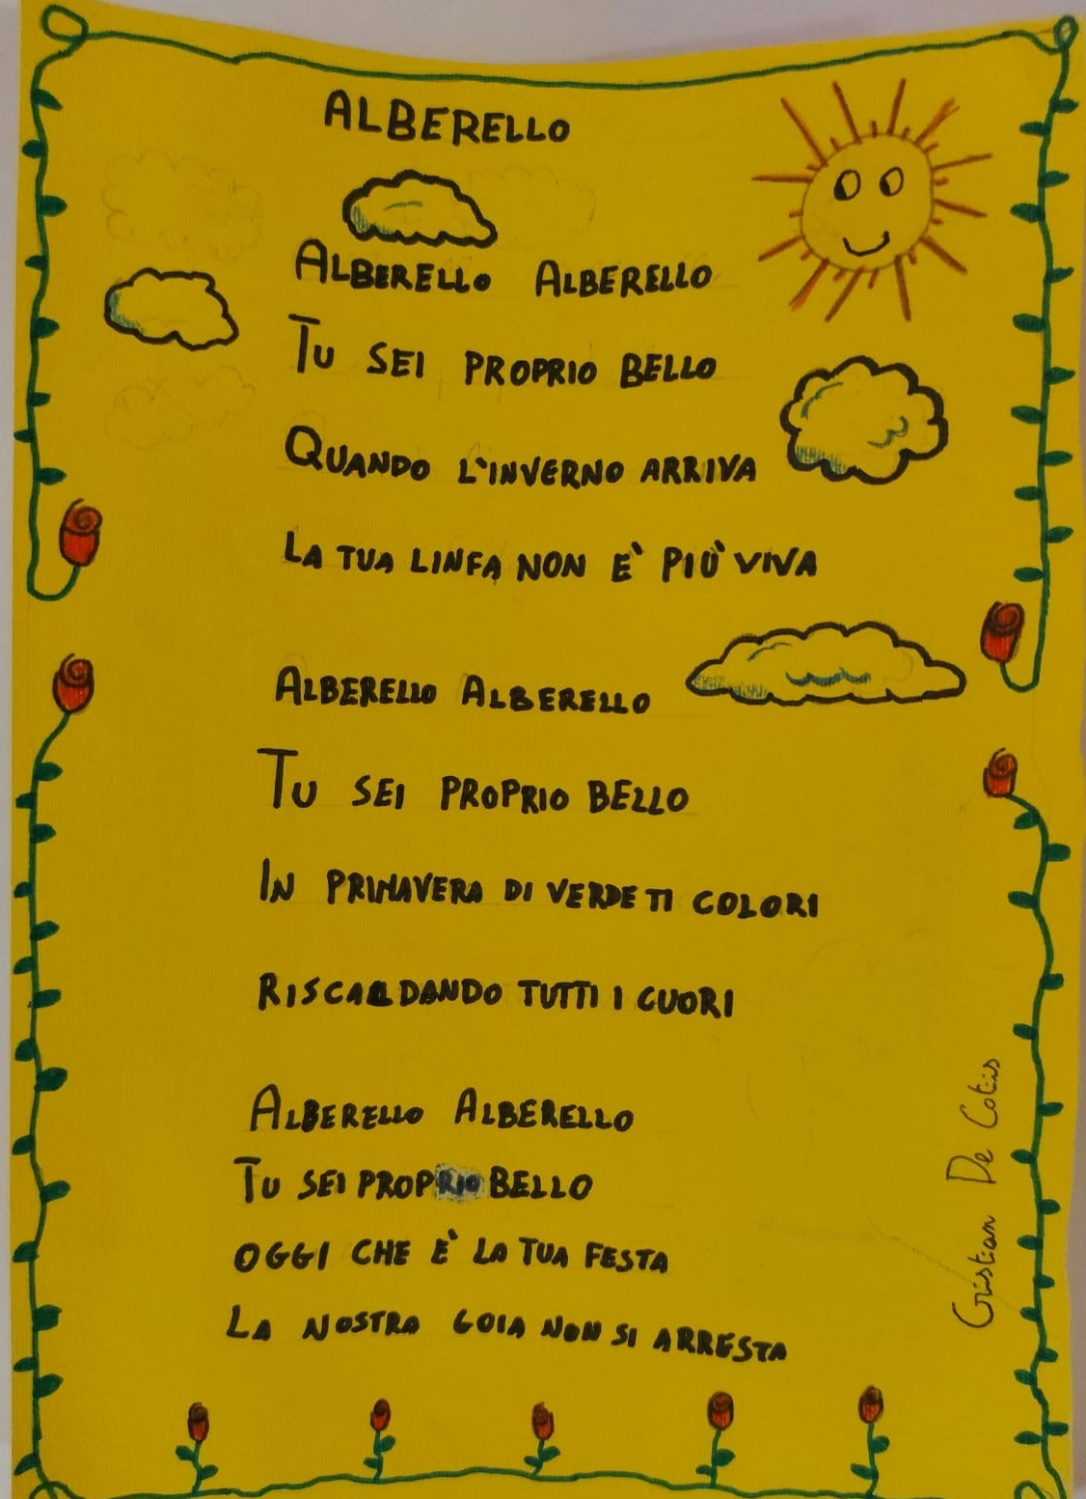 ALBERELLO
ALBERELLO ALBERELLO
TU SEI PROPRIO BELLO
QUANDO L'INVERNO ARRIVA
LA TUA LINFA NON È PIÙ VIVA
ALBERELLO ALBERELLO
TU SEI PROPRIO BELLO
IN PRIMAVERA DI VERDE TI COLORI
RISCALDANDO TUTTI I CUORI
ALBERELLO ALBERELLO
TU SEI PROPRIO BELLO
OGGI CHE È LA TUA FESTA
LA NOSTRA GOIA NON SI ARRESTA
Cristian De Cotiis